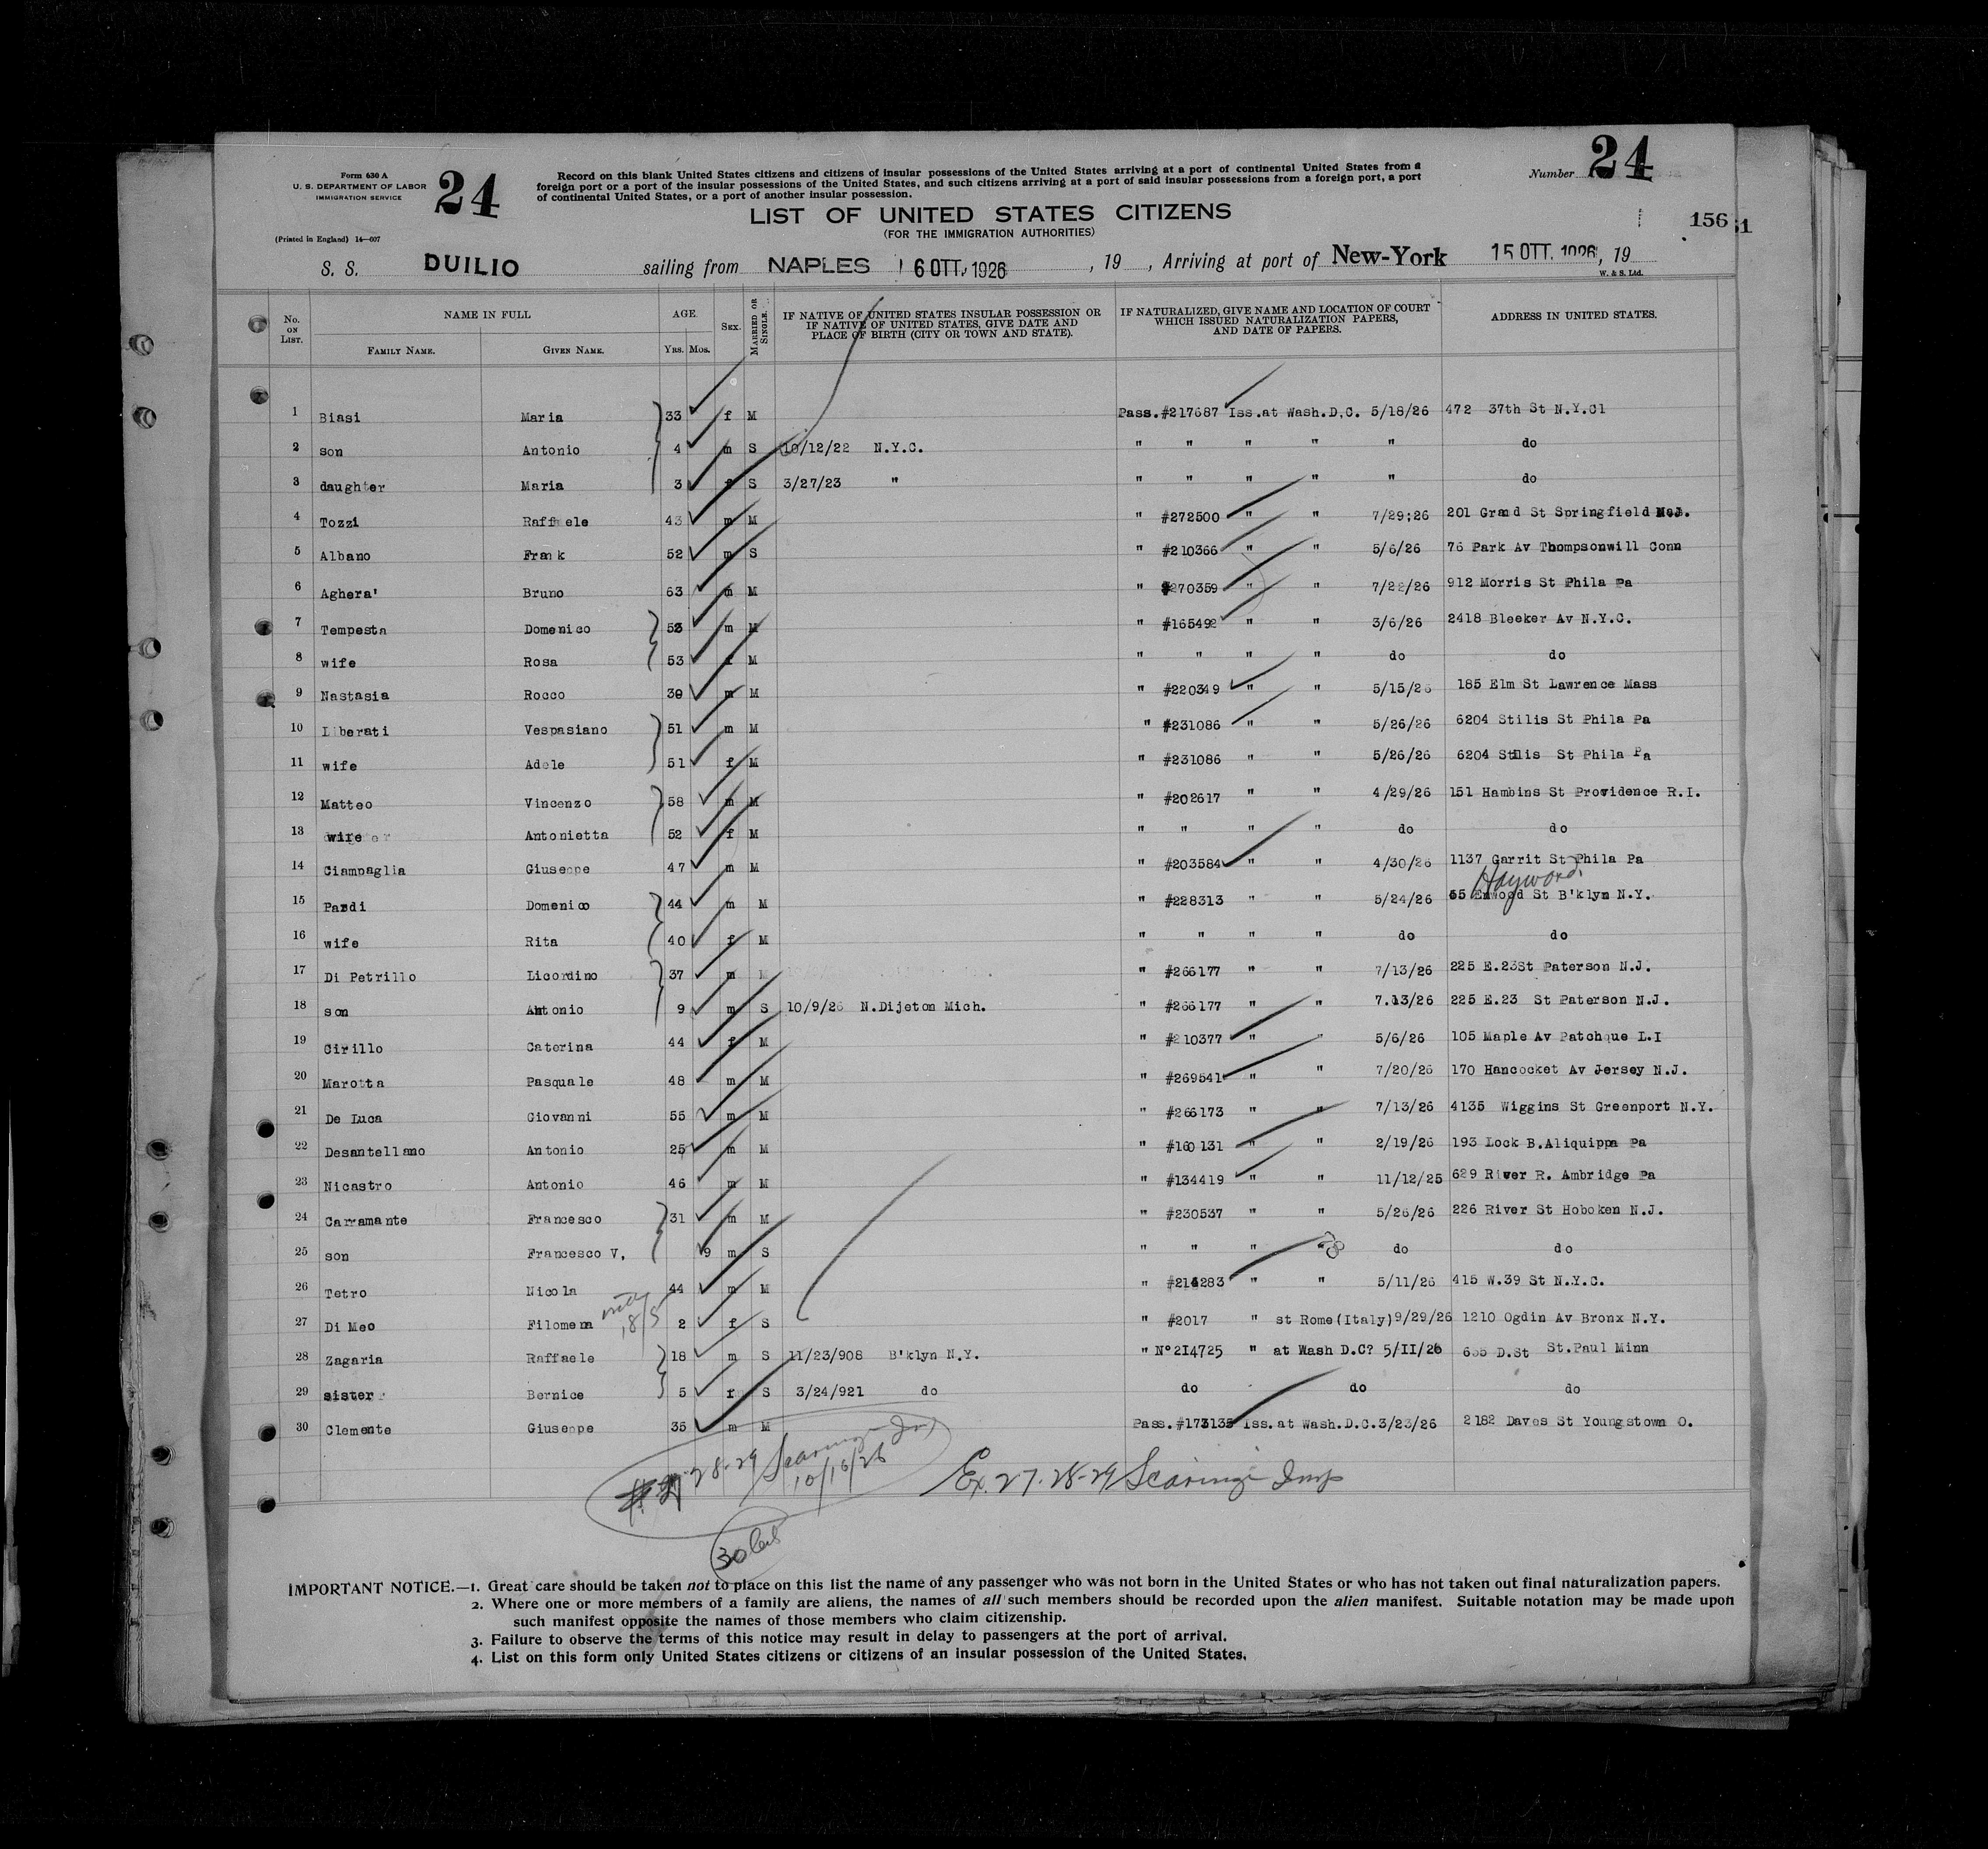 Form 630 A
U. S. DEPARTMENT OF LABOR
IMMIGRATION SERVICE
24
Record on this blank United States citizens and citizens of insular possessions of the United States arriving at a port of continental United States from a
foreign port or a port of the insular possessions of the United States, and such citizens arriving at a port of said insular possessions from a foreign port, a port
of continental United States, or a port of another insular possession.
Number 24
LIST OF UNITED STATES CITIZENS
(FOR THE IMMIGRATION AUTHORITIES)
156
(Printed in England) 14—607
S. S. DUILIO sailing from NAPLES 6 OTT. 1926 , 19 , Arriving at port of New-York 15 OTT. 1926 , 19
W. & S. Ltd.
No. ON LIST. NAME IN FULL AGE. SEX. MARRIED OR SINGLE. IF NATIVE OF UNITED STATES INSULAR POSSESSION OR IF NATIVE OF UNITED STATES, GIVE DATE AND PLACE OF BIRTH (CITY OR TOWN AND STATE). IF NATURALIZED, GIVE NAME AND LOCATION OF COURT WHICH ISSUED NATURALIZATION PAPERS, AND DATE OF PAPERS. ADDRESS IN UNITED STATES.
FAMILY NAME. GIVEN NAME. YRS. MOS.
1 Biasi Maria 33 f M Pass.#217687 Iss.at Wash.D.C. 5/18/26 472 37th St N.Y.Cl
2 son Antonio 4 m S 10/12/22 N.Y.C. " " " " " do
3 daughter Maria 3 f S 3/27/23 " " " " " " do
4 Tozzi Raffaele 43 m M " #272500 " " 7/29;26 201 Grand St Springfield
5 Albano Frank 52 m S " #210366 " " 5/6/26 76 Park Av Thompsonwill Conn
6 Aghera' Bruno 63 m M " #270359 " " 7/22/26 912 Morris St Phila Pa
7 Tempesta Domenico m M " #165492 " " 3/6/26 2418 Bleeker Av N.Y.C.
8 wife Rosa 53 f M " " " " do do
9 Nastasia Rocco m M " #220349 " " 5/15/26 185 Elm St Lawrence Mass
10 Liberati Vespasiano 51 m M " #231086 " " 5/26/26 6204 Stilis St Phila Pa
11 wife Adele 51 f M " #231086 " " 5/26/26 6204 Stilis St Phila Pa
12 Matteo Vincenzo 58 m M " #202617 " " 4/29/26 151 Hambins St Providence R.I.
13 wife Antonietta 52 f M " " " " do do
14 Ciampaglia Giuseppe 47 m M " #203584 " " 4/30/26 1137 Garrit St Phila Pa
Hayword
15 Pardi Domenico 44 m M " #228313 " " 5/24/26 65 Enwood St B'klyn N.Y.
16 wife Rita 40 f M " " " " do do
17 Di Petrillo Licordino 37 m M " #266177 " " 7/13/26 225 E.23St Paterson N.J.
18 son Antonio 9 m S 10/9/26 N.Dijeton Mich. " #266177 " " 7.13/26 225 E.23 St Paterson N.J.
19 Cirillo Caterina 44 f M " #210377 " " 5/6/26 105 Maple Av Patchque L.I
20 Marotta Pasquale 48 m M " #269541 " " 7/20/26 170 Hancocket Av Jersey N.J.
21 De Luca Giovanni 55 m M " #266173 " " 7/13/26 4135 Wiggins St Greenport N.Y.
22 Desantellano Antonio 25 m M " #160131 " " 2/19/26 193 Lock B.Aliquippa Pa
23 Nicastro Antonio 46 m M " #134419 " " 11/12/25 629 River R. Ambridge Pa
24 Carramante Francesco 31 m M " #230537 " " 5/26/26 226 River St Hoboken N.J.
25 son Francesco V. 9 m S " " " " do do
26 Tetro Nicola 44 m M " #214283 " " 5/11/26 415 W.39 St N.Y.C.
27 Di Meo Filomena 2 f S " #2017 " st Rome(Italy)9/29/26 1210 Ogdin Av Bronx N.Y.
28 Zagaria Raffaele 18 m S 11/23/908 B'klyn N.Y. " N°2I4725 " at Wash D.C? 5/II/26 D.St St.Paul Minn
29 sister Bernice 5 f S 3/24/921 do do do do
30 Clemente Giuseppe 35 m M Pass.#173135 Iss.at Wash.D.C.3/23/26 2182 Daves St Youngstown O.
28-29
10/16/26
Ex. 27-28-29 Scaringi Insp
30
IMPORTANT NOTICE.—1. Great care should be taken not to place on this list the name of any passenger who was not born in the United States or who has not taken out final naturalization papers.
2. Where one or more members of a family are aliens, the names of all such members should be recorded upon the alien manifest. Suitable notation may be made upon
such manifest opposite the names of those members who claim citizenship.
3. Failure to observe the terms of this notice may result in delay to passengers at the port of arrival.
4. List on this form only United States citizens or citizens of an insular possession of the United States.